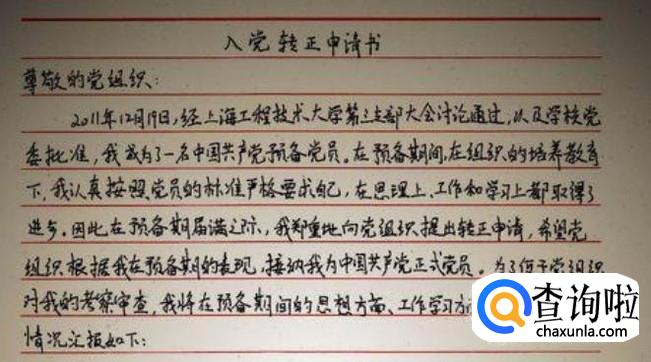 入党转正申请书
尊敬的党组织：
2011年12月19日，经上海工程技术大学第三支部大会讨论通过，以及学校党
委批准，我成为了一名中国共产党预备党员。在预备期间，在组织的培养教育
下，我认真按照党员的标准严格要求自己，在思理上、工作和学习上都取得了
进步。因此在预备期届满之际，我郑重地向党组织提出转正申请，希望党
组织根据我在预备期的表现，接纳我为中国共产党正式党员。为了便于党组织
对我的考察审查，我将在预备期间的思想方面、工作学习方
情况汇报如下：
查询啦
chaxunla.com